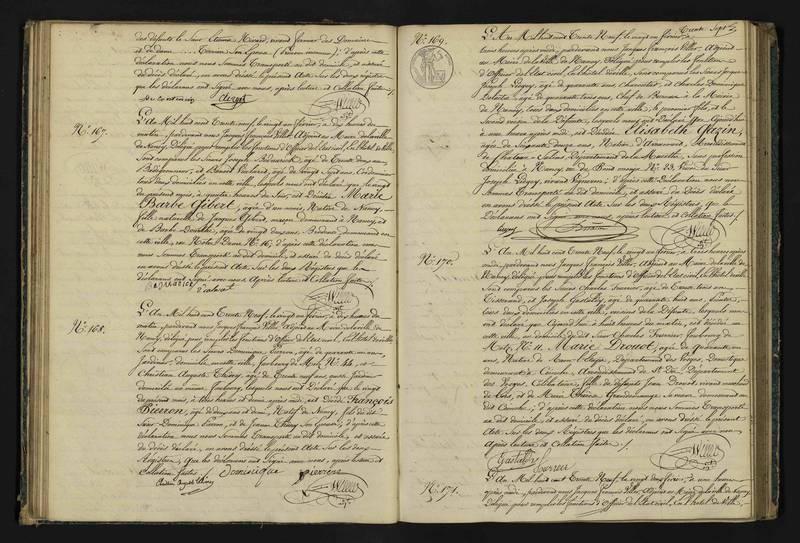 des défunts le Sieur Etienne Mirard, vivant fermier des Domaines
et de dame .... Terrien Son Epouse (prénom inconnu); d'après cette
déclaration nous nous sommes transporté au dit domicile, et assuré
du décès déclaré, en avons dressé le présent Acte Sur les deux registres
que les déclarans ont Signé avec nous, après lecture et Collation faites.
N.° 167.
L'An Mil huit cent Trente neuf, le vingt un février, à dix heures du
matin, pardevant nous Jacques François Villet Adjoint au Maire de la ville
de Nancy, Délégué pour remplir les fonctions d'Officier de l'état civil, en l'hôtel de Ville,
Sont comparus les Sieurs Joseph
et Benoit agé de vingt Sept ans, Cordonnier
tous deux domiciliés en cette ville, lesquels nous ont déclaré que le vingt
du présent mois, à quatre heures du Soir, est Décédée Marie
Barbe Gibert, agée d'un mois, Native de Nancy,
fille naturelle de Jacques Gibert, maçon demeurant à Nancy, et
de Barbe agée de vingt deux ans, Brodeuse demeurant en
cette ville, rue Notre Dame N.° 16; d'après cette déclaration nous
nous sommes transporté au dit domicile, et assuré du décès déclaré
en avons dressé le présent Acte Sur les deux Registres que les
déclarans ont Signé avec nous Après lecture et Collation faites.
N.° 168.
L'An Mil huit cent Trente Neuf, le vingt un février, à dix heures du
matin, pardevant nous Jacques François Villet Adjoint au Maire de la ville de
Nancy, délégué pour remplir les fonctions d'Officier de l'état civil, en l'hôtel de Ville
Sont comparus les Sieurs Dominique Pierron, agé de quarante un ans,
Jardinier domicilié en cette ville faubourg de Metz N.° 44, et
Christian Auguste Thiery, agé de Trente neuf ans, aussi Jardinier
domicilié au même faubourg, lesquels nous ont Déclaré que le vingt
du présent mois, à trois heures et demie après midi, est Décédé François
Pierron, agé de deux ans et demi, Natif de Nancy, fils du dit
Sieur Dominique Pierron, et de Jeanne Thiery Son Epouse; d'après cette
déclaration, nous nous sommes transporté au dit domicile, et assuré
du décès déclaré, en avons dressé le présent Acte Sur les deux
Registres, que les déclarans ont Signé avec nous, après lecture et
Collation faites. Dominique Pierron
Christian Auguste Thiery
Trente Sept
N.° 169.
L'An Mil huit cent Trente Neuf, le vingt un février, à
trois heures après midi, pardevant nous Jacques François Villet, Adjoint
au Maire de la Ville de Nancy, Délégué pour remplir les fonctions
d'Officier de l'état civil, en l'hôtel de ville, Sont comparus les Sieurs Jacques
Joseph Lugny, agé de quarante ans, charretier, et Charles Dominique
agé de quarante trois ans, Chef de Bureau à la Mairie
de Nancy, tous deux domiciliés en cette ville, le premier fils, et le
Second voisin de la Défunte, lesquels nous ont déclaré que Aujourd'hui
à une heure après midi, est Décédée Elisabeth Gazin,
agée de Soixante douze ans, Native d'Amancourt, Arrondissement
de Chateau Salins, Département de la Meurthe, Sans profession
domiciliée à Nancy, rue du Pont mouja N.° 23, Veuve du Sieur
Joseph Lugny, vivant Vigneron; d'après cette déclaration nous nous
Sommes Transporté au dit domicile, et assuré du Décès déclaré
en avons dressé le présent Acte Sur les deux Registres, que les
déclarans ont Signé avec nous, après lecture et Collation faites.
Lugny
N.° 170.
L'An Mil huit cent Trente Neuf, le vingt un février, à trois heures après
midi, pardevant nous Jacques François Villet, Adjoint au Maire de la ville de
Nancy, délégué pour remplir les fonctions d'Officier de l'état civil, en l'hôtel de ville
Sont comparus les Sieurs Charles Ferreur, agé de Trente trois ans
Tisserand, et Joseph Gastaldy, agé de quarante huit ans, Peintre,
tous deux domiciliés en cette ville, voisins de la Défunte, lesquels nous
ont déclaré que Aujourd'hui à huit heures du matin, est décédée en
cette ville, au domicile du dit Sieur Charles Ferreur, faubourg de
Metz, N.° 11, Marie Drouot, agée de quarante un
ans, Native de Département des Vosges, Domestique
demeurant à Coinche, Arrondissement de S.t Dié Département
des Vosges, Célibataire, fille de défunts Jean Drouot vivant marchand
de Bois, et de Marie Thérèse Granddemange Sa mère demeurant au
dit Coinche; d'après cette déclaration nous nous sommes transporté
au dit domicile, et assuré du décès déclaré, en avons dressé le présent
Acte Sur les deux Registres que les déclarans ont Signé avec nous
Après lecture et Collation faites.
Gastaldy Ferreur
N.° 171.
L'An Mil huit cent Trente Neuf, le vingt deux février, à une heure
après midi, pardevant nous Jacques François Villet, Adjoint au Maire de la ville de Nancy,
Délégué pour remplir les fonctions d'Officier de l'état civil, en l'hôtel de Ville,